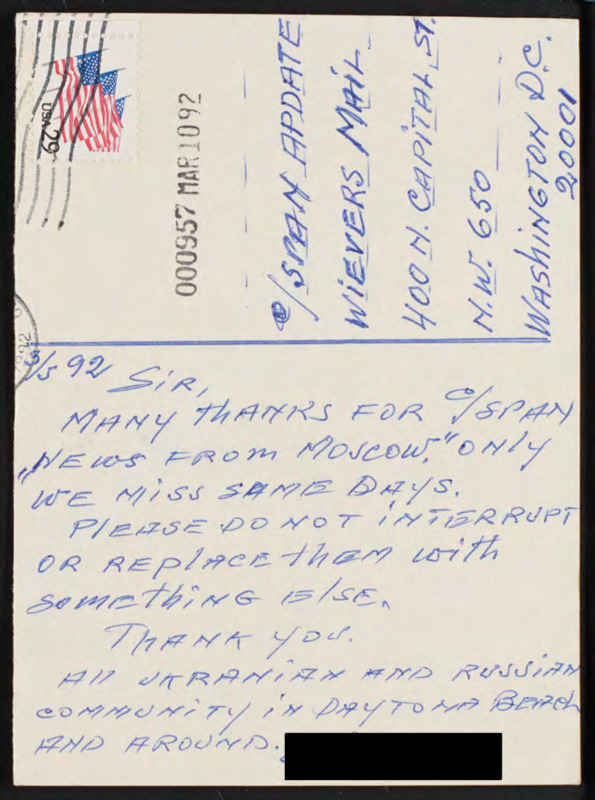 USA 29
000957 MAR 10 92
C/SPAN APDATE
WIEVERS MAIL
400 N. CAPITAL ST.
N.W. 650
WASHINGTON D.C.
20001
3/5 92
SIR,
MANY THANKS FOR C/SPAN
„NEWS FROM MOSCOW." ONLY
WE MISS SAME DAYS.
PLEASE DO NOT INTERRUPT
OR REPLACE THEM WITH
SOMETHING ELSE.
THANK YOU.
All UKRANIAN AND RUSSIAN
COMMUNITY IN DAYTONA BEACH
AND AROUND.